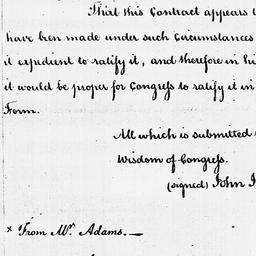 That this Contract appears t
have been made under such Circumstances
it expedient to ratify it, and therefore in hi
it would be proper for Congress to ratify it in
Form.
All which is submitted
Wisdom of Congress.
(signed) John J
x From Mr. Adams. —